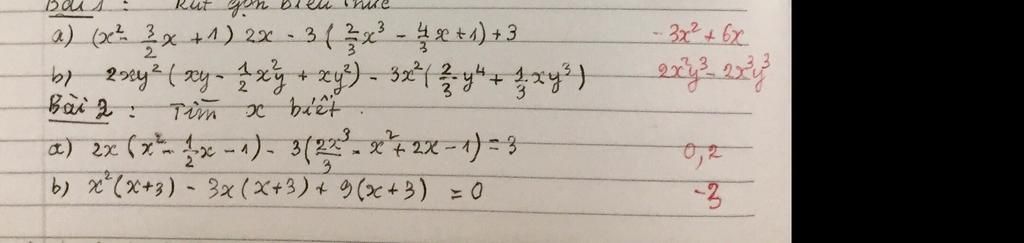 Bài 1 : Rút gọn biểu thức
a) (x² - 3/2 x + 1) 2x - 3 ( 2/3 x³ - 4/3 x + 1) + 3 - 3x² + 6x
b) 2xy² ( xy - 1/2 x²y + xy²) - 3x² ( 2/3 y⁴ + 1/3 xy³ ) 2x²y³ - 2x³y³
Bài 2 : Tìm x biết .
a) 2x (x² - 1/2 x - 1) - 3( 2x³/3 - x² + 2x - 1) = 3 0,2
b) x² (x+3) - 3x (x+3) + 9(x+3) = 0 -3